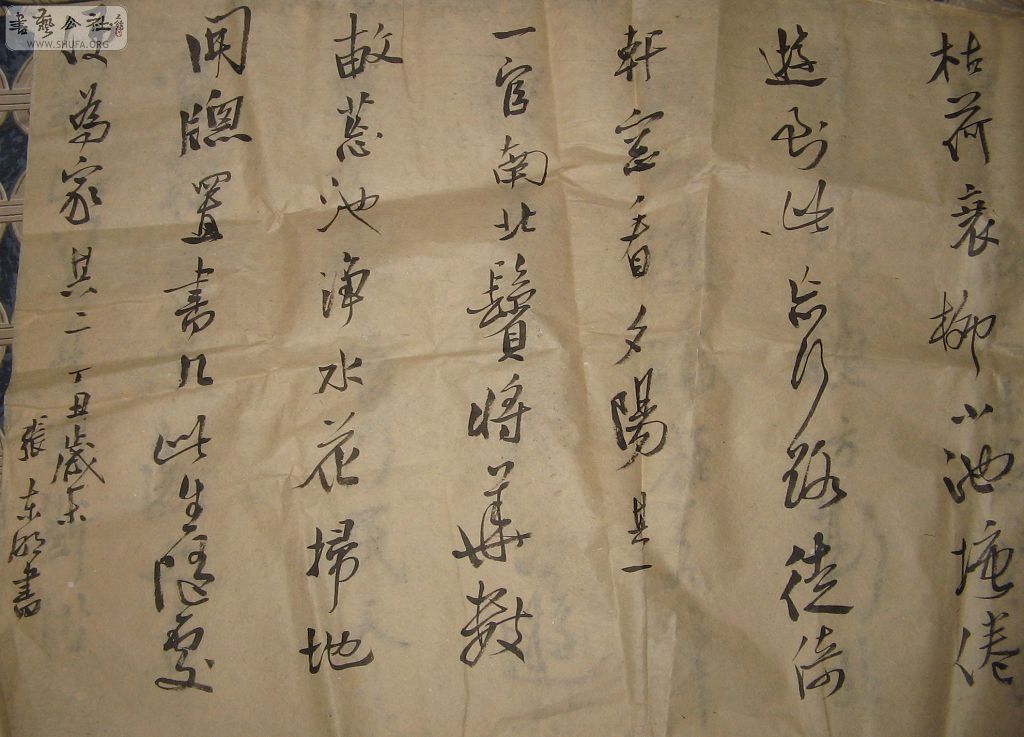 書藝公社
WWW.SHUFA.ORG
枯荷衰柳小池塘倦
遊到此忘行路徙倚
軒窓看夕陽其一
一官南北鬢將華數
畝荒池淨水花掃地
開牕置書几此生隨處
為家其二丁丑歲末
張東書